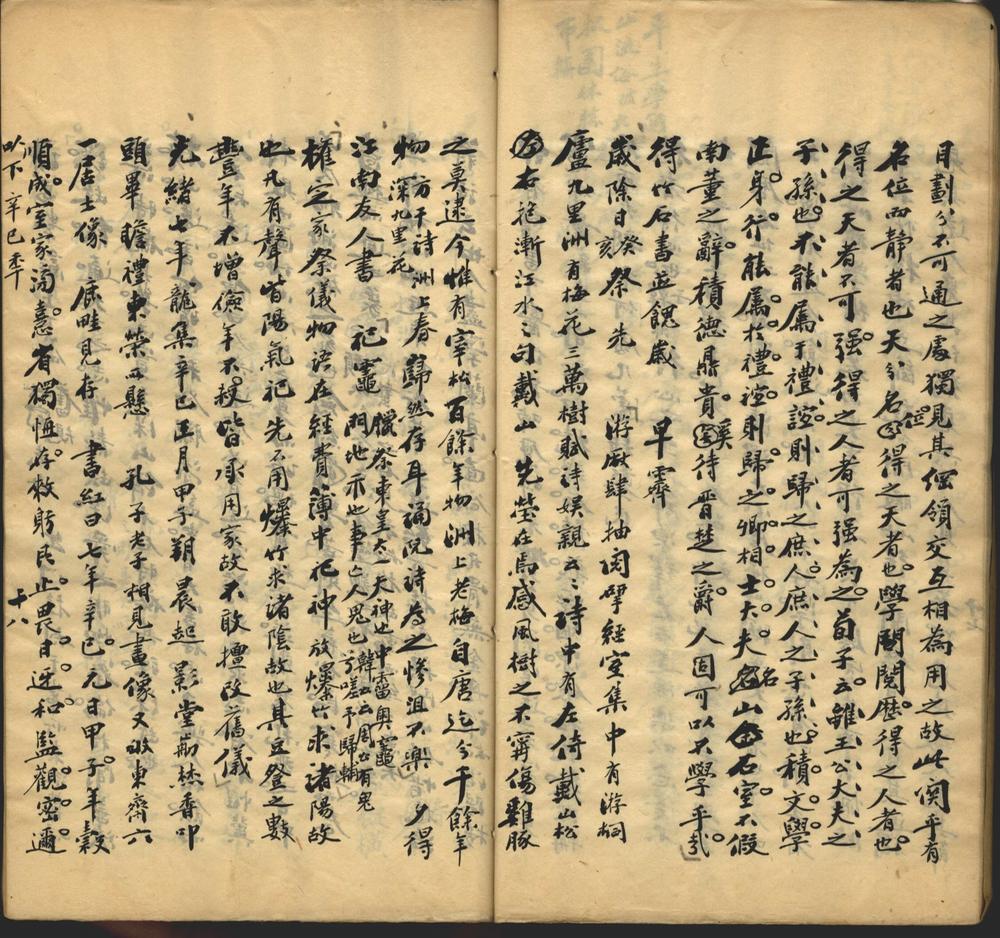 目劃分不可通之處獨見其個領交互相為用之故此関乎有
名位而靜者也天分名位得之天者也學問閱歷得之人者也
得之天者不可强得之人者可强為之荀子云雖王公大夫之
子孫也不能屬于禮誼則歸之庶人庶人之子孫也積文學
正身行能屬於禮誼則歸之卿相士大夫名山金石室不假
南董之辭積德鼎貴奚待晋楚之爵人固可以不學乎哉
得竹石書並餽歲 早霽
歲除日癸亥祭先 游廠肆抽閱揅經室集中有游桐
廬九里洲有梅花三萬樹賦詩娱親云云詩中有左倚戴山松
右右挹漸江水之句戴山先塋在焉感風樹之不甯傷雞豚
之莫逮今惟有宰松百餘年物洲上老梅自唐迄今千餘年
物方干詩洲上春深九里花歸然存耳誦阮詩為之慘沮不樂 夕得
江南友人書 祀竈臘祭東皇太一天神也中霤奥竈門地示也事亡人鬼也韓公云周公有鬼兮嗟予歸輔
榷定家祭儀物語在經費薄中祀神放爆竹求諸陽故
也凡有聲皆陽氣祀先不用爆竹求諸陰故也其豆登之數
豐年不增儉年不殺皆承用家故不敢擅改舊儀
光緒七年龍集辛巳正月甲子朔晨起影堂前焚香叩
頭畢瞻禮東榮而懸孔子老子相見畫像又敬東齋六
一居士像底畦見存 書紅曰七年辛巳元日甲子年穀
順成室家溱憙有獨恆存敕躬民止畏日迓和監觀密邇
吟下 辛巳季
十八